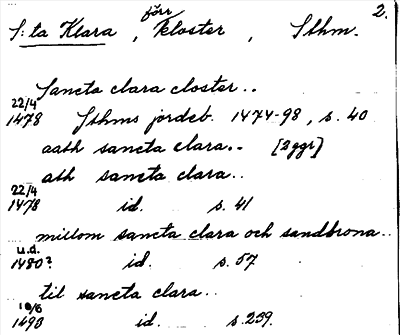 2.
S:ta Klara, förr kloster, Sthm.
Sancta clara closter..
22/4
1478 Sthms jordeb. 1474-98, s. 40
aath sancta clara.. [2ggr]
ath sancta clara..
22/4
1478 id. s. 41
millom sancta clara och sandbrona..
u.d.
1480? id. s. 57
til sancta clara..
10/6
1490 id. s. 239.